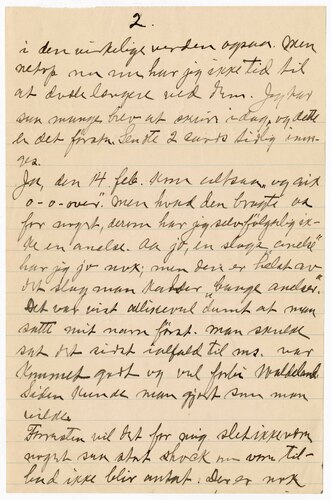 2.
i den virkelige verden ogsaa. Men
netop nu nu har jeg ikke tid til
at dvæle længere ved dem. Jeg har
saa mange brev at skrive idag, og dette
er det første. Sendte 2 cards tidlig imor-
ges.
Ja, den 14 feb. kom altsaa, "og gik
o-o-over". Men hvad den bragte os
for noget, derom har jeg selvfølgelig ik-
ke en anelse. Aa jo, en slags anelse
har jeg jo nok; men den er helst av
det slag man kalder "bange anelser".
Det var vist allikevel dumt at man
satte mit navn først. Man skulde
sat det sidst ialfald til ms. var
kommet godt og vel forbi Waldeland.
Siden kunde man gjort som man
vilde.
Forresten vil det for mig slet ikke være
noget saa stort shock om vore til-
bud ikke blir antat. Der er nok